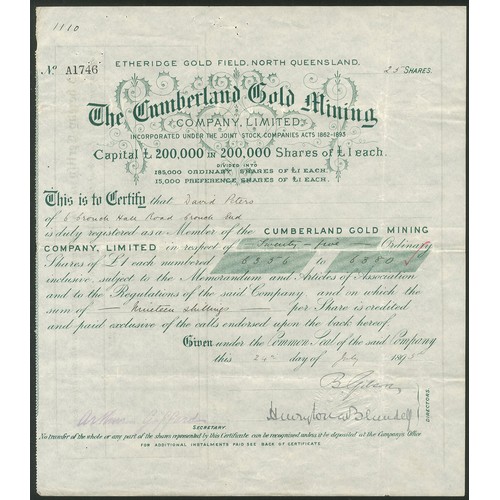 1110
ETHERIDGE GOLD FIELD, NORTH QUEENSLAND.
No A1746
25 SHARES.
The Cumberland Gold Mining
COMPANY, LIMITED.
INCORPORATED UNDER THE JOINT STOCK COMPANIES ACTS 1862-1893.
Capital £200,000 in 200,000 Shares of £1 each.
DIVIDED INTO
185,000 ORDINARY SHARES OF £1 EACH.
15,000 PREFERENCE SHARES OF £1 EACH.
This is to Certify that David Peters
of 6 Crouch Hall Road Crouch End
is duly registered as a Member of the CUMBERLAND GOLD MINING
COMPANY, LIMITED in respect of Twenty-five Ordinary
Shares of £1 each numbered 6356 to
inclusive, subject to the Memorandum and Articles of Association
and to the Regulations of the said Company and on which the
sum of Nineteen shillings per Share is credited
and paid exclusive of the calls endorsed upon the back hereof.
Given under the Common Seal of the said Company
this 24th day of July 189
DIRECTORS.
SECRETARY.
No transfer of the whole or any part of the shares represented by this Certificate can be recognised unless it be deposited at the Company's Office
FOR ADDITIONAL INSTALMENTS PAID SEE BACK OF CERTIFICATE